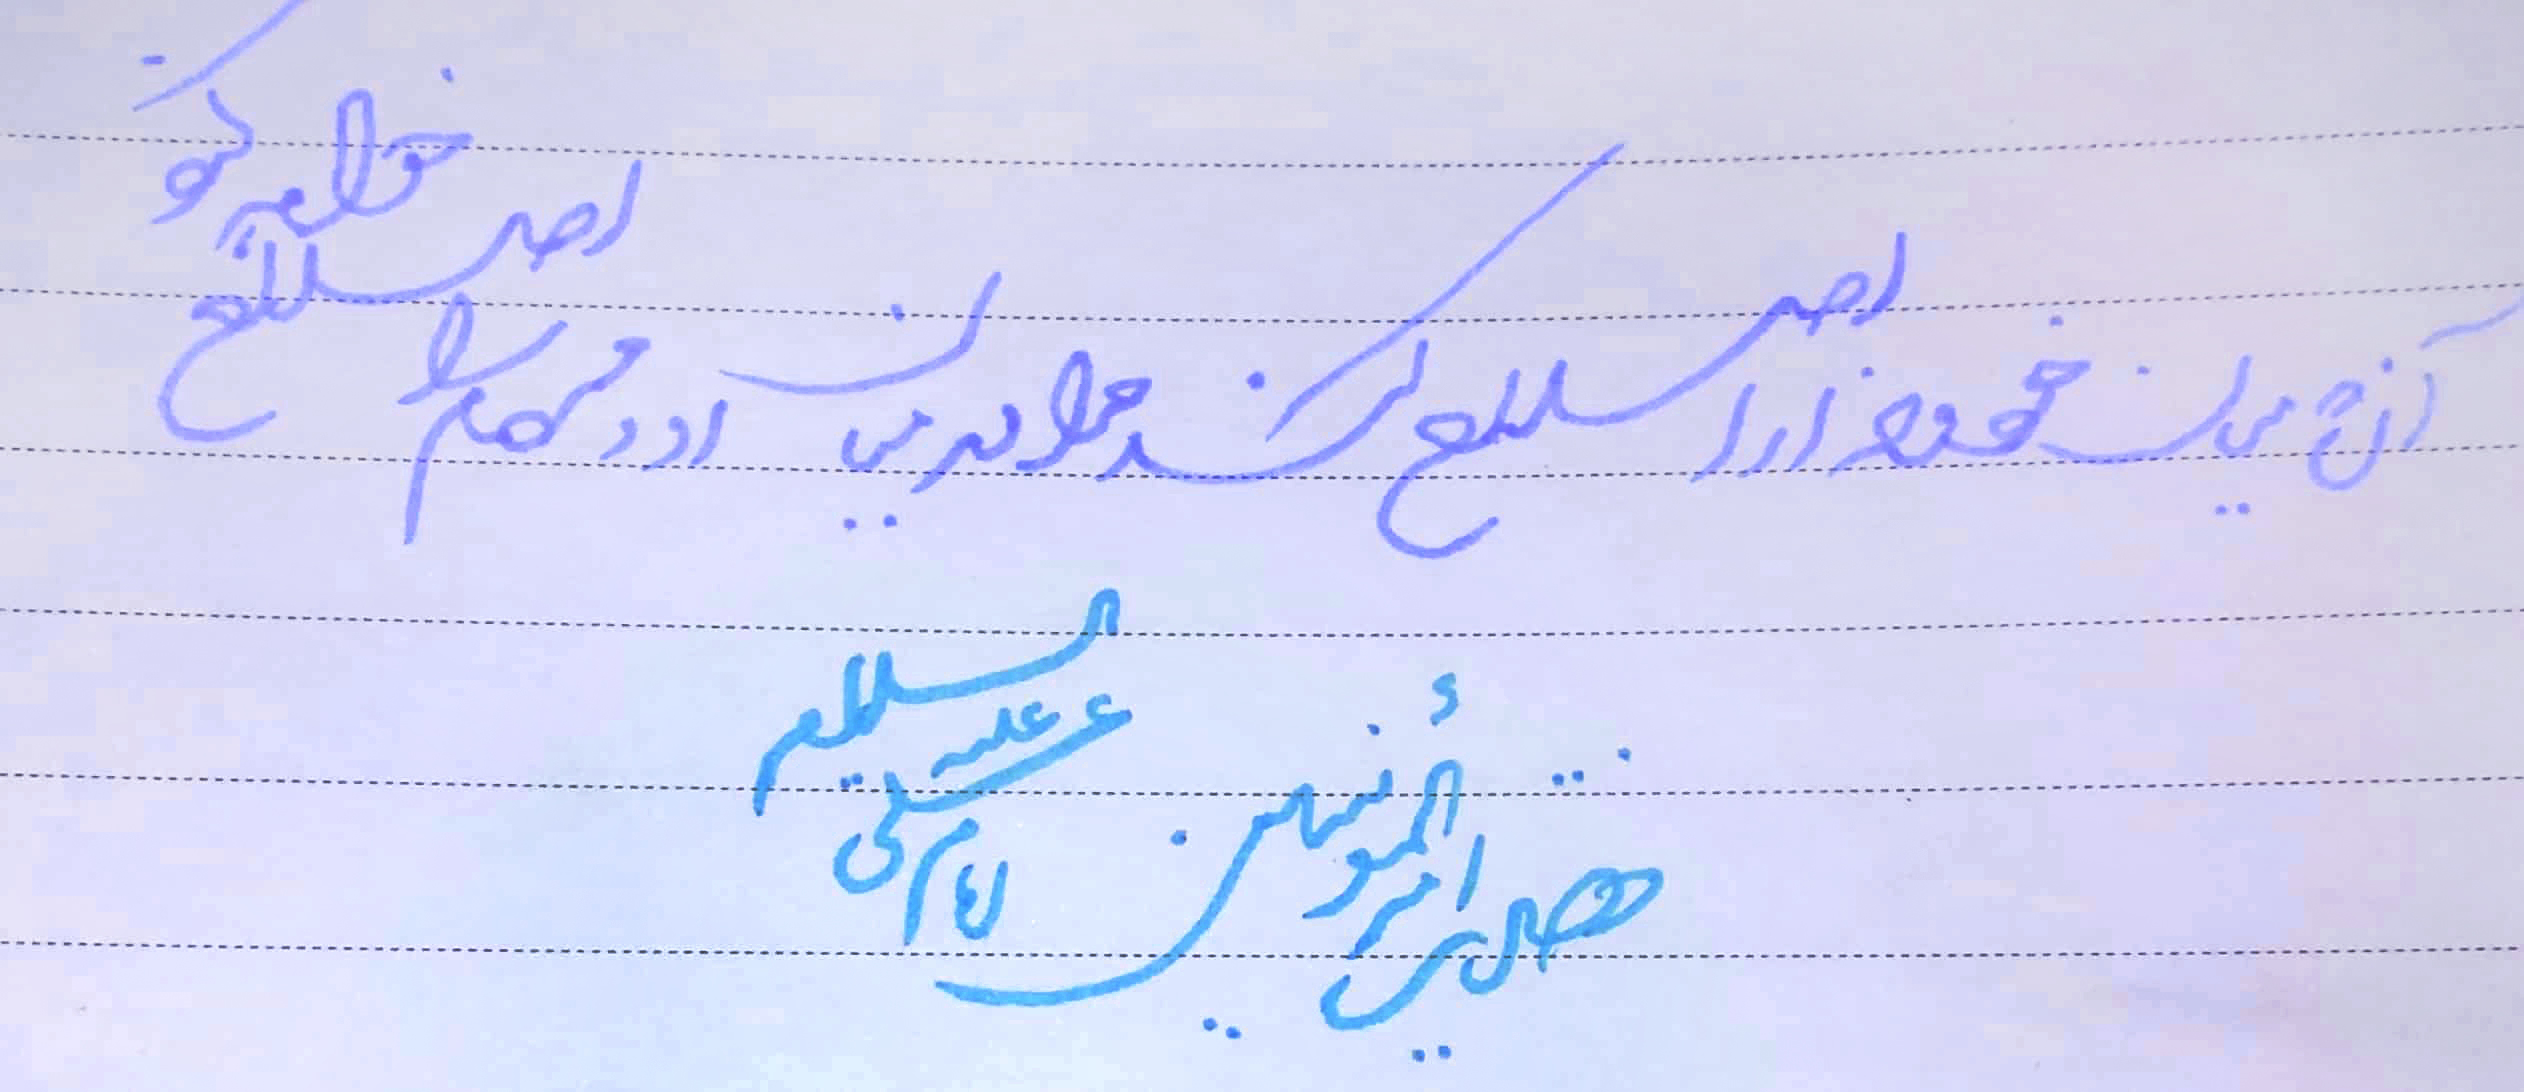 آنچه میان خود و خدا را اصلاح کند خداوند میان او و مردم را اصلاح خواهد کرد
حضرت امیرالمؤمنین امام علی علیه السلام